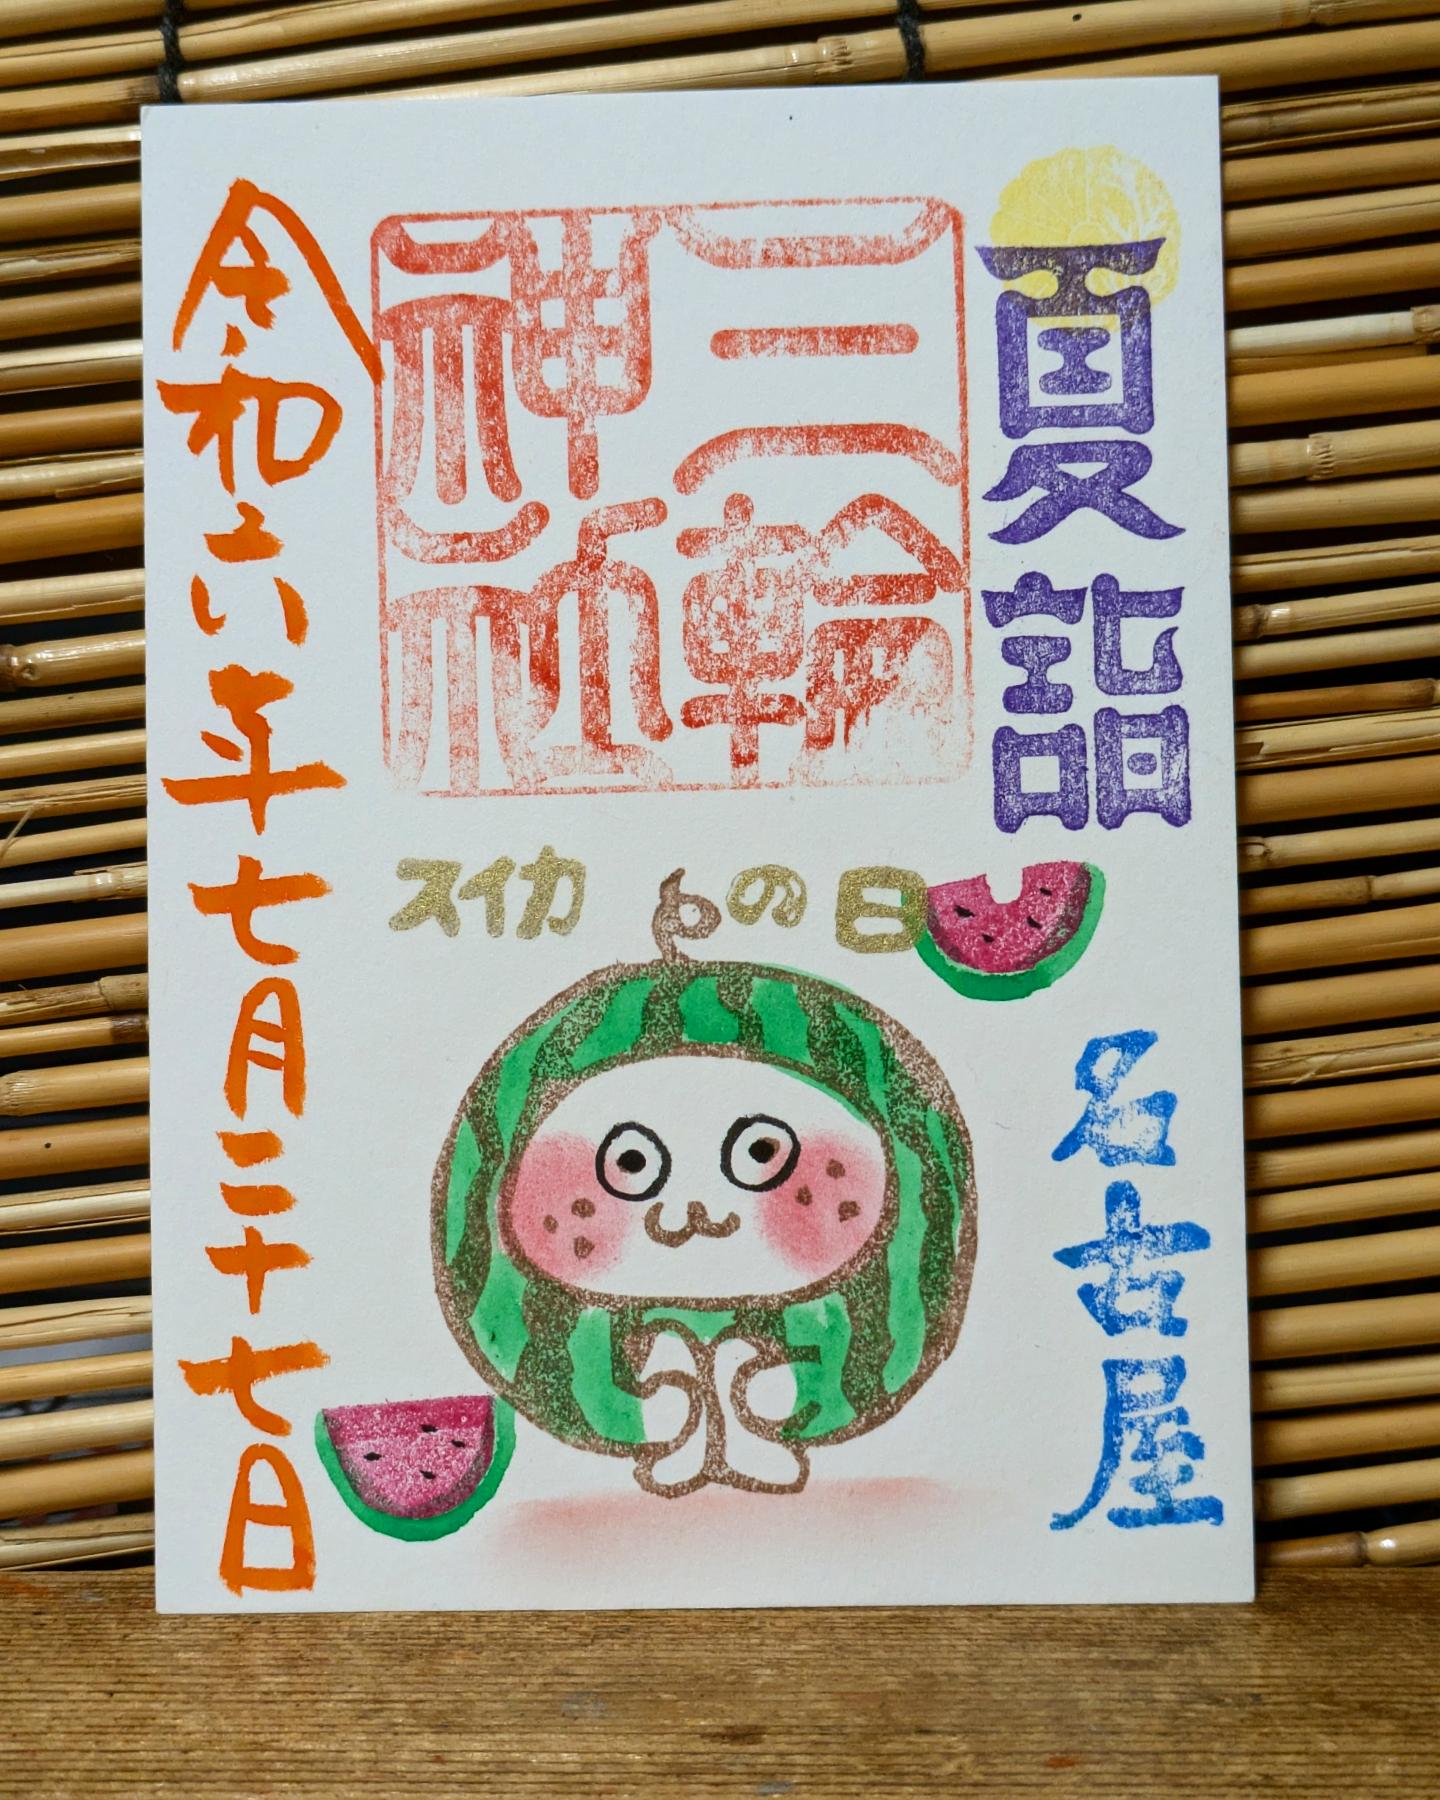 夏詣
三輪
神社
スイカの日
名古屋
令和六年七月二十七日